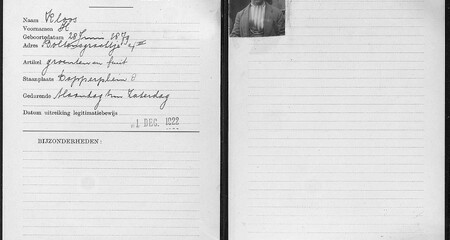 Naam Kloos
Voornamen H
Geboortedatum 28 Juni 1879
Adres
Artikel groenten en fruit
Staanplaats Dapperplein 8
Gedurende Maandag t/m Zaterdag
Datum uitreiking legitimatiebewijs 1 DEC. 1922
BIJZONDERHEDEN: